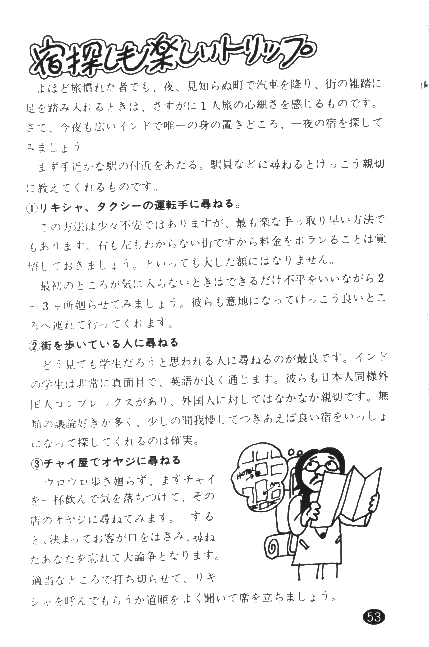 宿探しも楽しいトリップ
よほど旅慣れた者でも、夜、見知らぬ町で汽車を降り、街の雑踏に
足を踏み入れるときは、さすがに1人旅の心細さを感じるものです。
さて、今夜も広いインドで唯一の身の置きどころ、一夜の宿を探して
みましょう
まず手近かな駅の付近をあたる。駅員などに尋ねるとけっこう親切
に教えてくれるものです。
①リキシャ、タクシーの運転手に尋ねる。
この方法は少々不安ではありますが、最も楽な手っ取り早い方法で
もあります。右も左もわからない街ですから料金をボラレることは覚
悟しておきましょう。といっても大した額にはなりません。
最初のところが気に入らないときはできるだけ不平をいいながら2
〜3ヶ所廻らせてみましょう。彼らも意地になってけっこう良いとこ
ろへ連れて行ってくれます。
②街を歩いている人に尋ねる
どう見ても学生だろうと思われる人に尋ねるのが最良です。インド
の学生は非常に真面目で、英語が良く通じます。彼らも日本人同様外
国人コンプレックスがあり、外国人に対してはなかなか親切です。無
類の議論好きが多く、少しの間我慢してつきあえば良い宿をいっしょ
になって探してくれるのは確実。
③チャイ屋でオヤジに尋ねる
ウロウロ歩き廻らず、まずチャイ
を一杯飲んで気を落ちつけて、その
店のオヤジに尋ねてみます。 する
と、決まってお客が口をはさみ、尋ね
たあなたを忘れて大論争となります。
適当なところで打ち切らせて、リキ
シャを呼んでもらうか道順をよく聞いて席を立ちましょう。
HOTEL
53